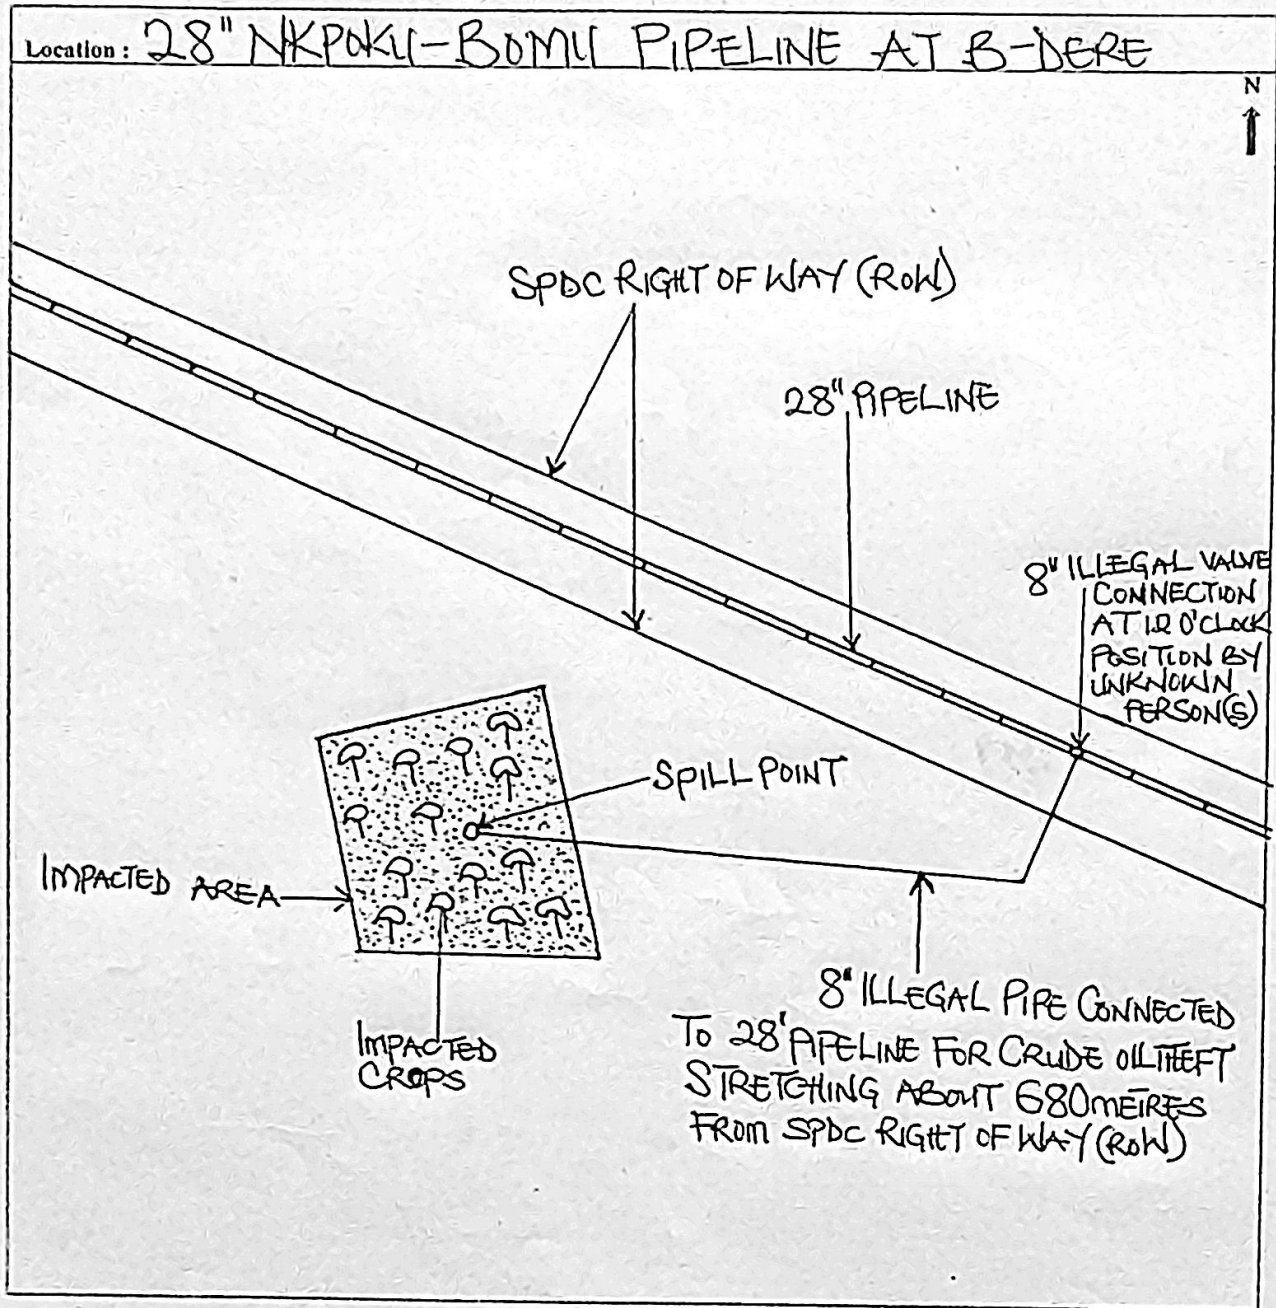 Location : 28" NKPOKU-BOMU PIPELINE AT B-DERE
N
SPDC RIGHT OF WAY (ROW)
28" PIPELINE
8" ILLEGAL VALVE
CONNECTION
AT 12 O'CLOCK
POSITION BY
UNKNOWN
PERSON(S)
SPILL POINT
IMPACTED AREA
8" ILLEGAL PIPE CONNECTED
TO 28' PIPELINE FOR CRUDE OIL THEFT
STRETCHING ABOUT 680 METRES
FROM SPDC RIGHT OF WAY (ROW)
IMPACTED
CROPS